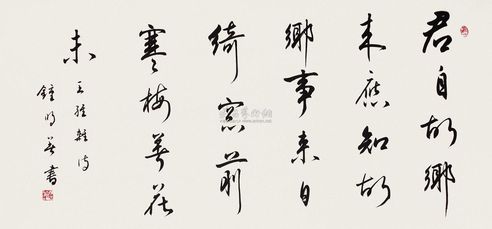 君自故鄉
来應知故
鄉事来日
綺窓前
寒梅著花
未
王維雜诗
鍾明善書